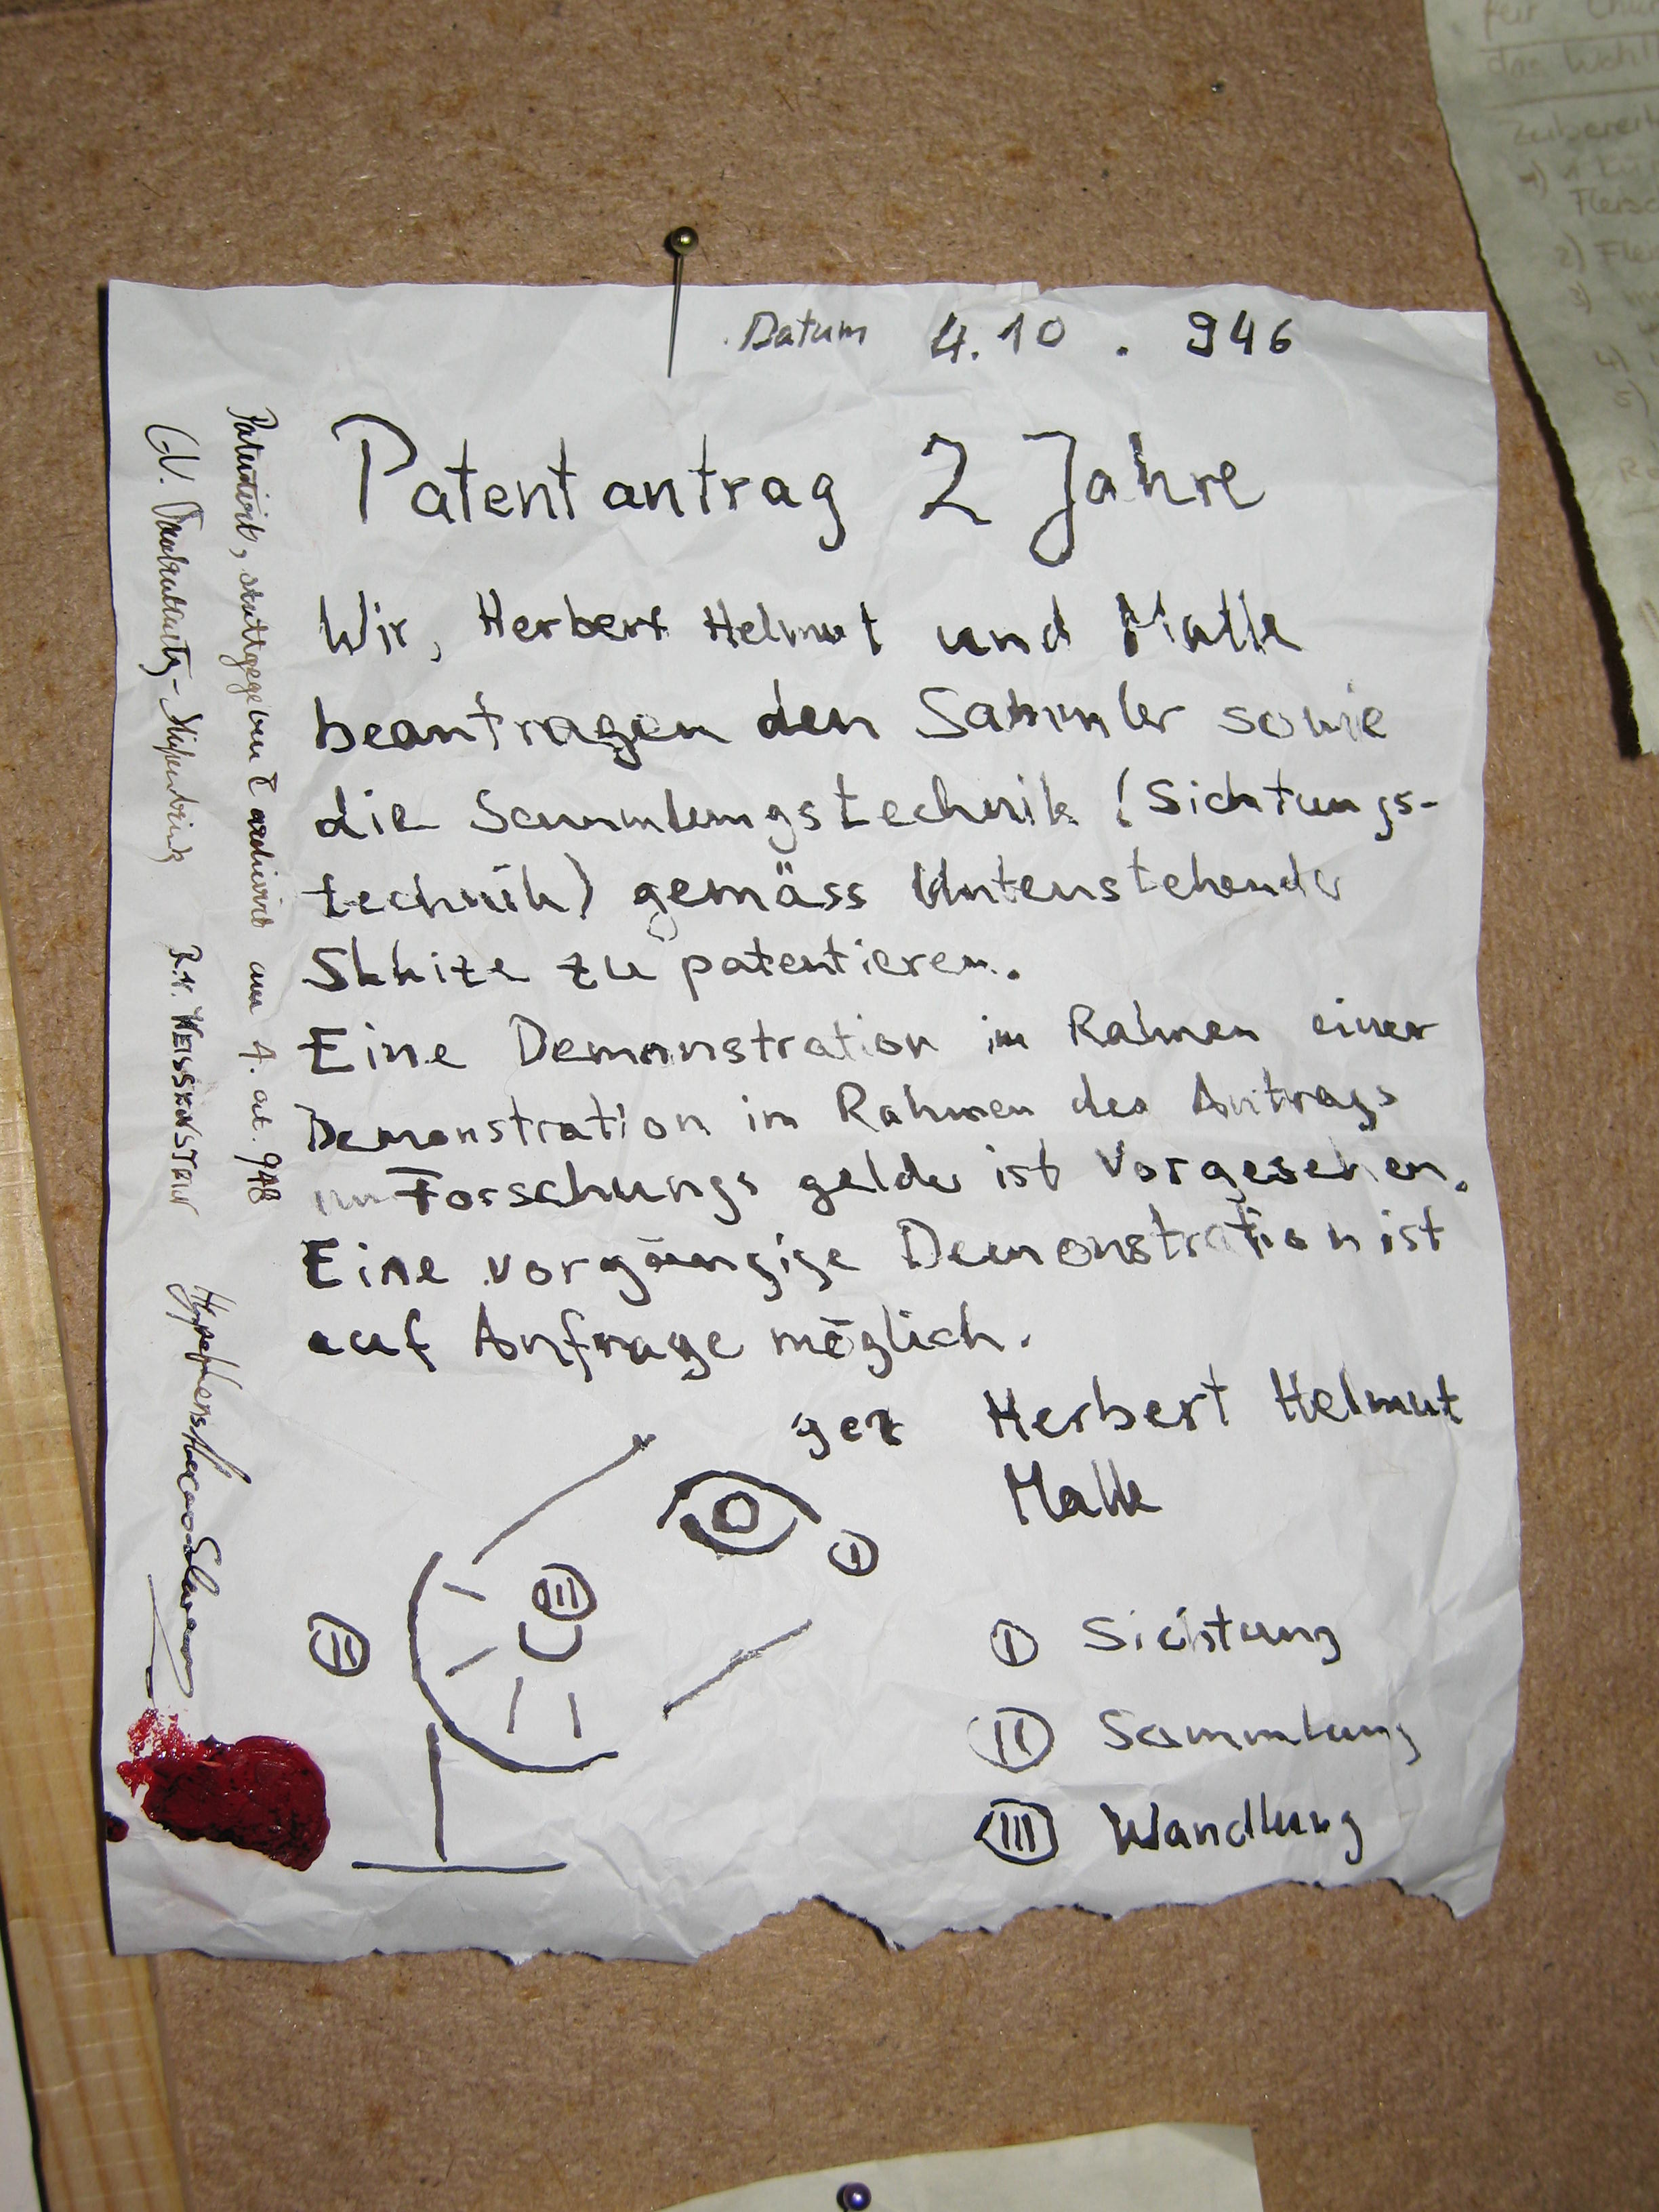 Datum 4.10. 946
Patentantrag 2 Jahre
Wir, Herbert Helmut und Malle
beantragen den Sammler sowie
die Sammlungstechnik (Sichtungs-
technik) gemäss Untenstehender
Skkize zu patentieren.
Eine Demonstration im Rahmen einer
Demonstration im Rahmen des Antrags
um Forschungsgelder ist vorgesehen.
Eine vorgängige Demonstration ist
auf Anfrage möglich.
gez Herbert Helmut
Malle
I
III
II
I Sichtung
II Sammlung
III Wandlung
Patentiert, stattgegeben & archiviert am 4. Okt. 948
R.H. WEISSKONSTAW
für
das Wohl
Zubereit
1)
Fleisc
2) Flei
3)
4)
5)